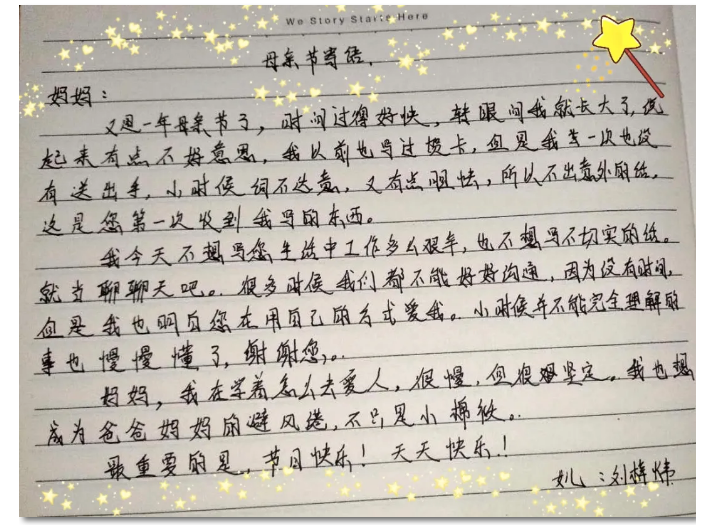 We Story Starts Here
母亲节寄语.
妈妈：
又思一年母亲节了，时间过得好快，转眼间我就长大了，说
起来有点不好意思，我以前也写过贺卡，但是我第一次也没
有送出手，小时候词不达意，又有点胆怯，所以不出意外的话，
这是您第一次收到我写的东西。
我今天不想写您生活中工作多么艰辛，也不想写不切实的话。
就当聊聊天吧。很多时候我们都不能好好沟通，因为没有时间，
但是我也明白您在用自己的方式爱我。小时候并不能完全理解的
事也慢慢懂了，谢谢您。
妈妈，我在学着怎么去爱人，很慢，但很坚定。我也想
成为爸爸妈妈的避风港，不只是小棉袄。
最重要的是，节日快乐！天天快乐！
女儿：刘梓炜